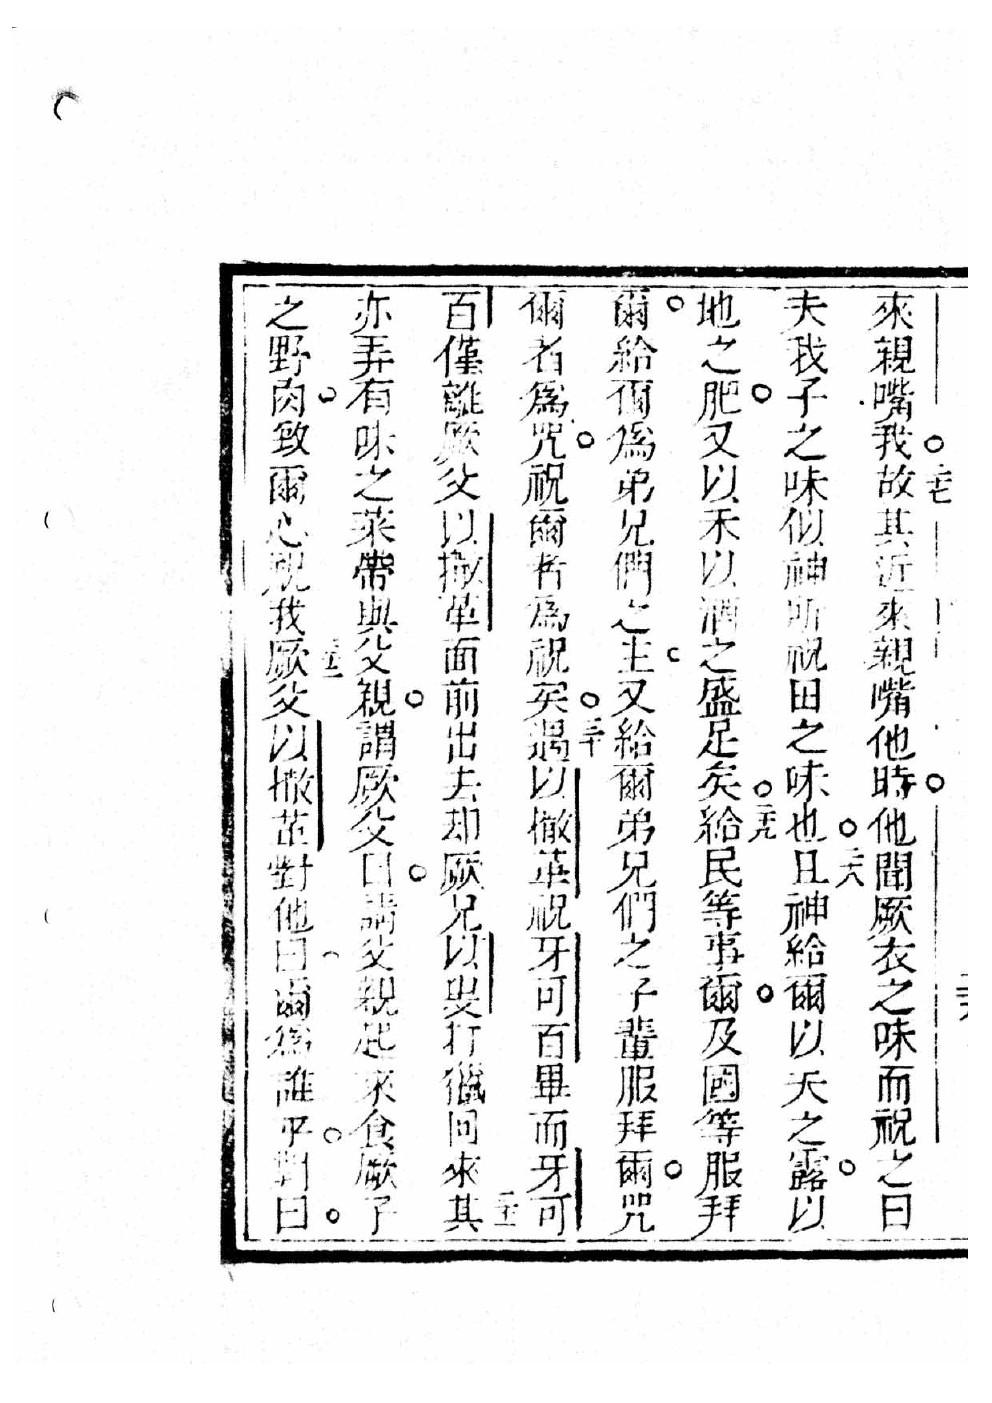 來親嘴我。二十七故其近來親嘴他時。他聞厥衣之味而祝之曰
夫我子之味似神所祝田之味也。二十八且神給爾以天之露。以
地之肥。又以禾以酒之盛足矣。二十九給民等事爾。及國等服拜
爾。給爾為弟兄們之主。又給爾弟兄們之子輩服拜爾。咒
爾者為咒。祝爾者為祝矣。三十遇以撒革祝牙可百畢而牙可
百僅離厥父以撒革面前出去却厥兄以與打獵回來其三十一
亦弄有味之菜帶與父親。謂厥父曰。請父親起來食厥子
之野肉。致爾心祝我三十二厥父以撒革對他曰。爾為誰乎。對曰。